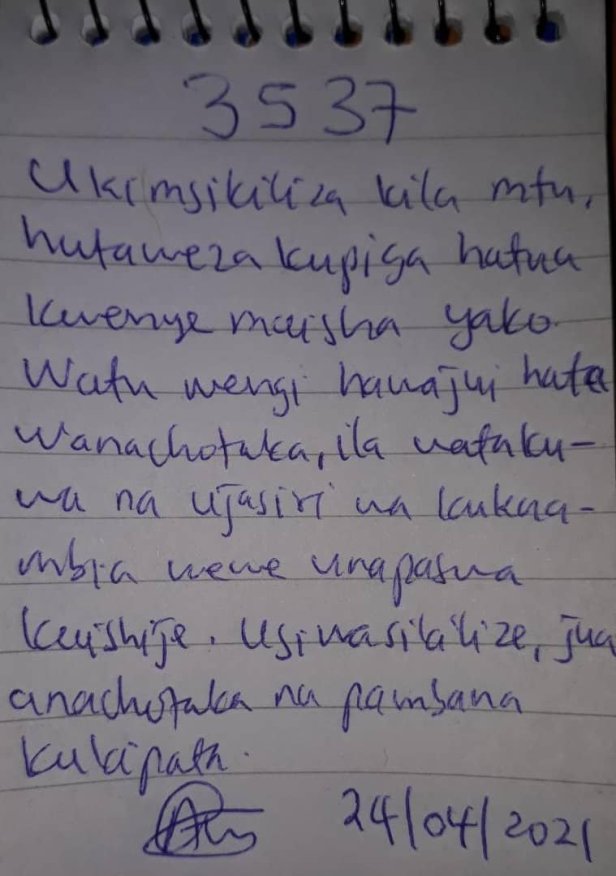 3537
Ukimsikiliza kila mtu,
hutaweza kupiga hatua
kwenye maisha yako.
Watu wengi hawajui hata
wanachotaka, ila wataku-
wa na ujasiri wa kukua-
mbia wewe unapaswa
kuishije. Usiwasikilize, jua
unachotaka na pambana
kukipata.
24/04/2021